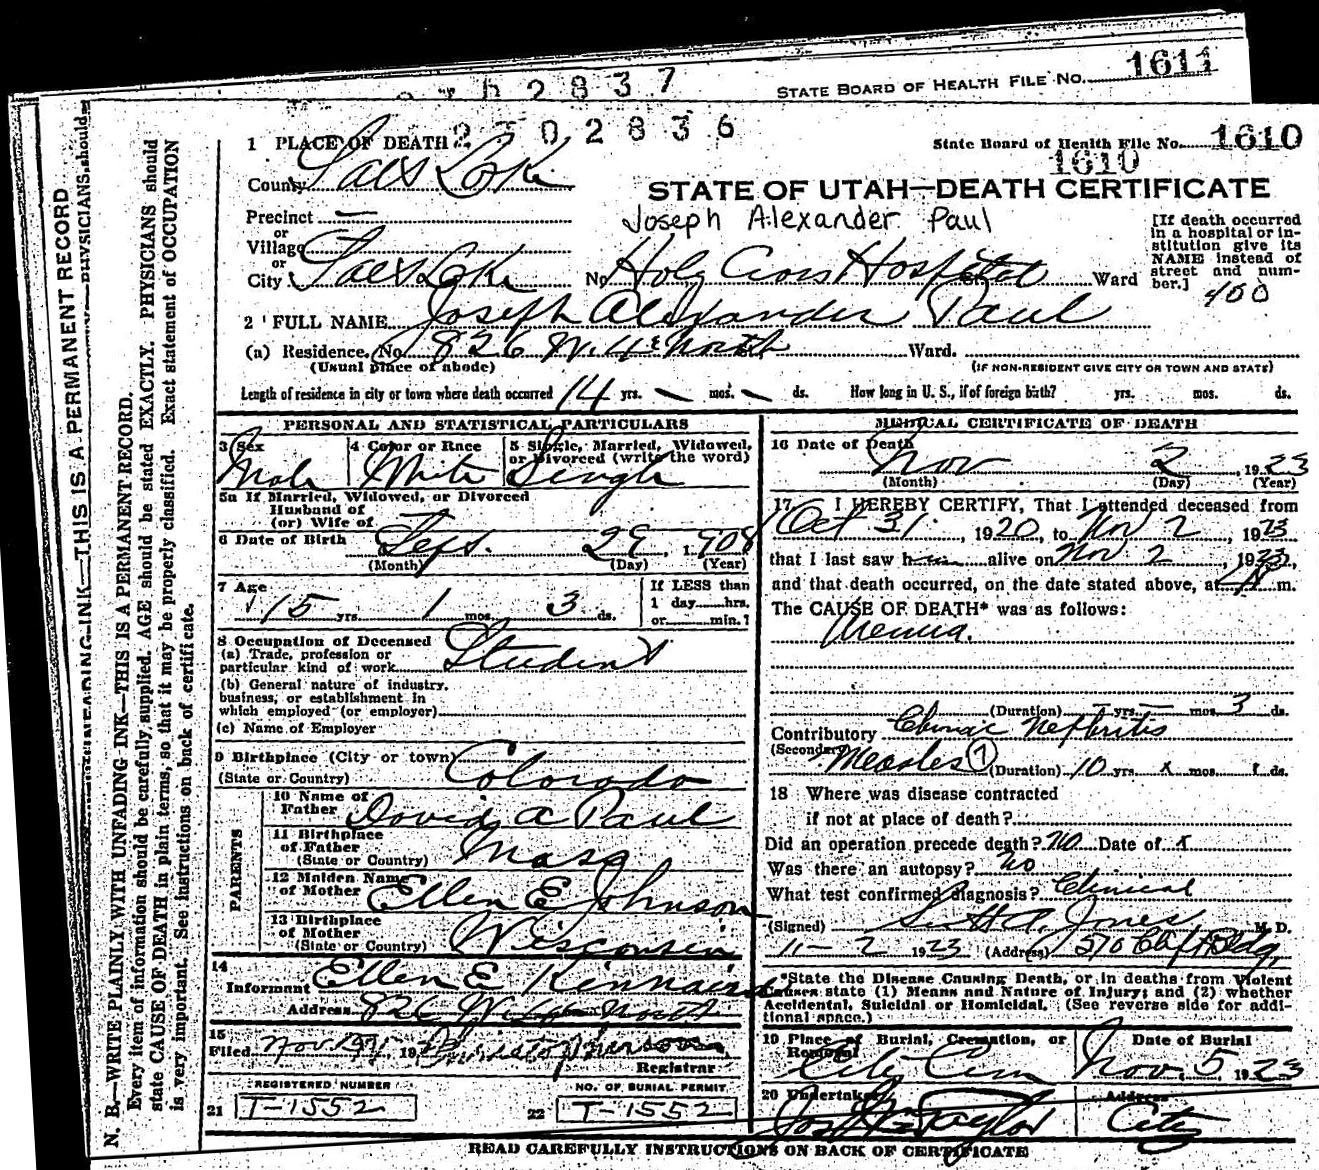 2837
STATE BOARD OF HEALTH FILE NO. 1611
2502836
State Board of Health File No. 1610
1610
1 PLACE OF DEATH
County Salt Lake
STATE OF UTAH—DEATH CERTIFICATE
Precinct —
or
Village
or
City Salt Lake No. Holy Cross Hospital St. Ward
Joseph Alexander Paul
[If death occurred
in a hospital or in-
stitution give its
NAME instead of
street and num-
ber.]
400
2 FULL NAME Joseph Alexander Paul
(a) Residence. No. 826 W. 4th North Ward.
(Usual place of abode) (IF NON-RESIDENT GIVE CITY OR TOWN AND STATE)
Length of residence in city or town where death occurred 14 yrs. — mos. — ds. How long in U. S., if of foreign birth? yrs. mos. ds.
PERSONAL AND STATISTICAL PARTICULARS
3 Sex 4 Color or Race 5 Single, Married, Widowed,
or Divorced (write the word)
Male White Single
5a If Married, Widowed, or Divorced
Husband of
(or) Wife of
6 Date of Birth Sept. 29, 1908
(Month) (Day) (Year)
7 Age 15 yrs. 1 mos. 3 ds.
If LESS than
1 day hrs.
or min.?
8 Occupation of Deceased
(a) Trade, profession or
particular kind of work Student
(b) General nature of industry,
business, or establishment in
which employed (or employer)
(c) Name of Employer
9 Birthplace (City or town)
(State or Country) Colorado
PARENTS
10 Name of
Father David A Paul
11 Birthplace
of Father
(State or Country) Mass
12 Maiden Name
of Mother Ellen E Johnson
13 Birthplace
of Mother
(State or Country) Wisconsin
14
Informant Ellen E Kinnaird
Address 826 W 4th North
15
Filed Nov. 19
Registrar
REGISTERED NUMBER
21 T-1552
NO. OF BURIAL PERMIT
22 T-1552
MEDICAL CERTIFICATE OF DEATH
16 Date of Death
Nov 2, 1923
(Month) (Day) (Year)
17 I HEREBY CERTIFY, That I attended deceased from
Oct 31, 1920, to Nov 2, 1923
that I last saw him alive on Nov 2, 1923,
and that death occurred, on the date stated above, at m.
The CAUSE OF DEATH* was as follows:
Uremia.
(Duration) — yrs. — mos. 3 ds.
Contributory Chronic Nephritis
(Secondary) Measles (?) (Duration) 10 yrs. x mos. ds.
18 Where was disease contracted
if not at place of death?
Did an operation precede death? No Date of x
Was there an autopsy? No
What test confirmed diagnosis? Clinical
(Signed) A. Jones M. D.
11-2 1923 (Address) 510 Clift Bldg.
*State the Disease Causing Death, or in deaths from Violent
Causes, state (1) Means and Nature of Injury; and (2) whether
Accidental, Suicidal or Homicidal. (See reverse side for addi-
tional space.)
19 Place of Burial, Cremation, or
Removal
City Cem
Date of Burial
Nov. 5 1923
20 Undertaker
Jos Wm Taylor
Address
City
READ CAREFULLY INSTRUCTIONS ON BACK OF CERTIFICATE
N. B.—WRITE PLAINLY WITH UNFADING INK—THIS IS A PERMANENT RECORD.
Every item of information should be carefully supplied. AGE should be stated EXACTLY. PHYSICIANS should
state CAUSE OF DEATH in plain terms, so that it may be properly classified. Exact statement of OCCUPATION
is very important. See instructions on back of certificate.
INK—THIS IS A PERMANENT RECORD
PHYSICIANS should